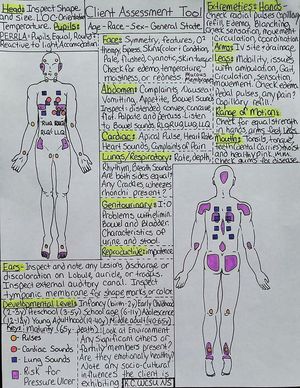 Head: Inspect Shape
and Size. LOC-Orientation
Temperature. Pupils:
PERRLA: Pupils, Equal, Round
Reactive to Light, Accomodation
Client Assessment Tool
Age - Race - Sex - General State
Face: Symmetry, features, O₂
therapy. Express. Skin (color & Condition,
Pale, flushed, Cyanotic, skin turgor
Check for edema, temperature,
moistness, or redness.
Mucous
Abdomen: Complaints, Nausea,
Vomiting, Appetite, Bowel Sounds
Inspect: distended, convex, concave
flat. Palpate and percuss. Listen
to Bowel Sounds RLQ, RUQ, LUQ, LLQ
Cardiac: Apical Pulse, Heart Rate
Heart Sounds, Complaints of Pain
Lungs/Respiratory: Rate, depth,
Rhythm, Breath Sounds
Are both sides equal?
Any Crackles, wheezes
rhonchi present?
Genitourinary: I & O
Problems with elimin.
Bowel and Bladder
Characteristics of
urine and stool.
Reproductive:
Extremeties: Hands-
Check radial pulses, Capillary
refill, Edema, Blanching,
Circulation
Arms: IV site & drainage
Legs: Mobility, issues
with ambulation, Gait
Circulation, sensation,
Movement. Check
Pedal pulses, any pain?
Capillary refill?
Range of Motion:
Check for equal strength
in hands, arms, feet, Legs
Mouth: Tonsils, tongue,
teeth (dental carries) moist
and healthy pink, want
Check gums for disease
RUQ LUQ
RLQ LLQ
Ears- Inspect and note any lesions, discharge or
discoloration on Lobule, auricle, or tragus.
Inspect external auditory canal. Inspect
tympanic membrane for shape, marks or color.
Developmental Levels: Infancy (birth-2y) Early Childhood
(2-3y) Preschool (3-5y) School age (6-11y) Adolescence
(12-19y) Young Adulthood (19-40y) Middle adult (40-65y)
Key: Maturity (65y-death)
Pulses
Cardiac Sounds
Lung Sounds
Risk for
Pressure Ulcer
Look at Environment
Any Significant others or
family members present?
Are they emotionally healthy?
Note any socio-cultural
influences the client is
exhibiting
K.C. WCSU NS